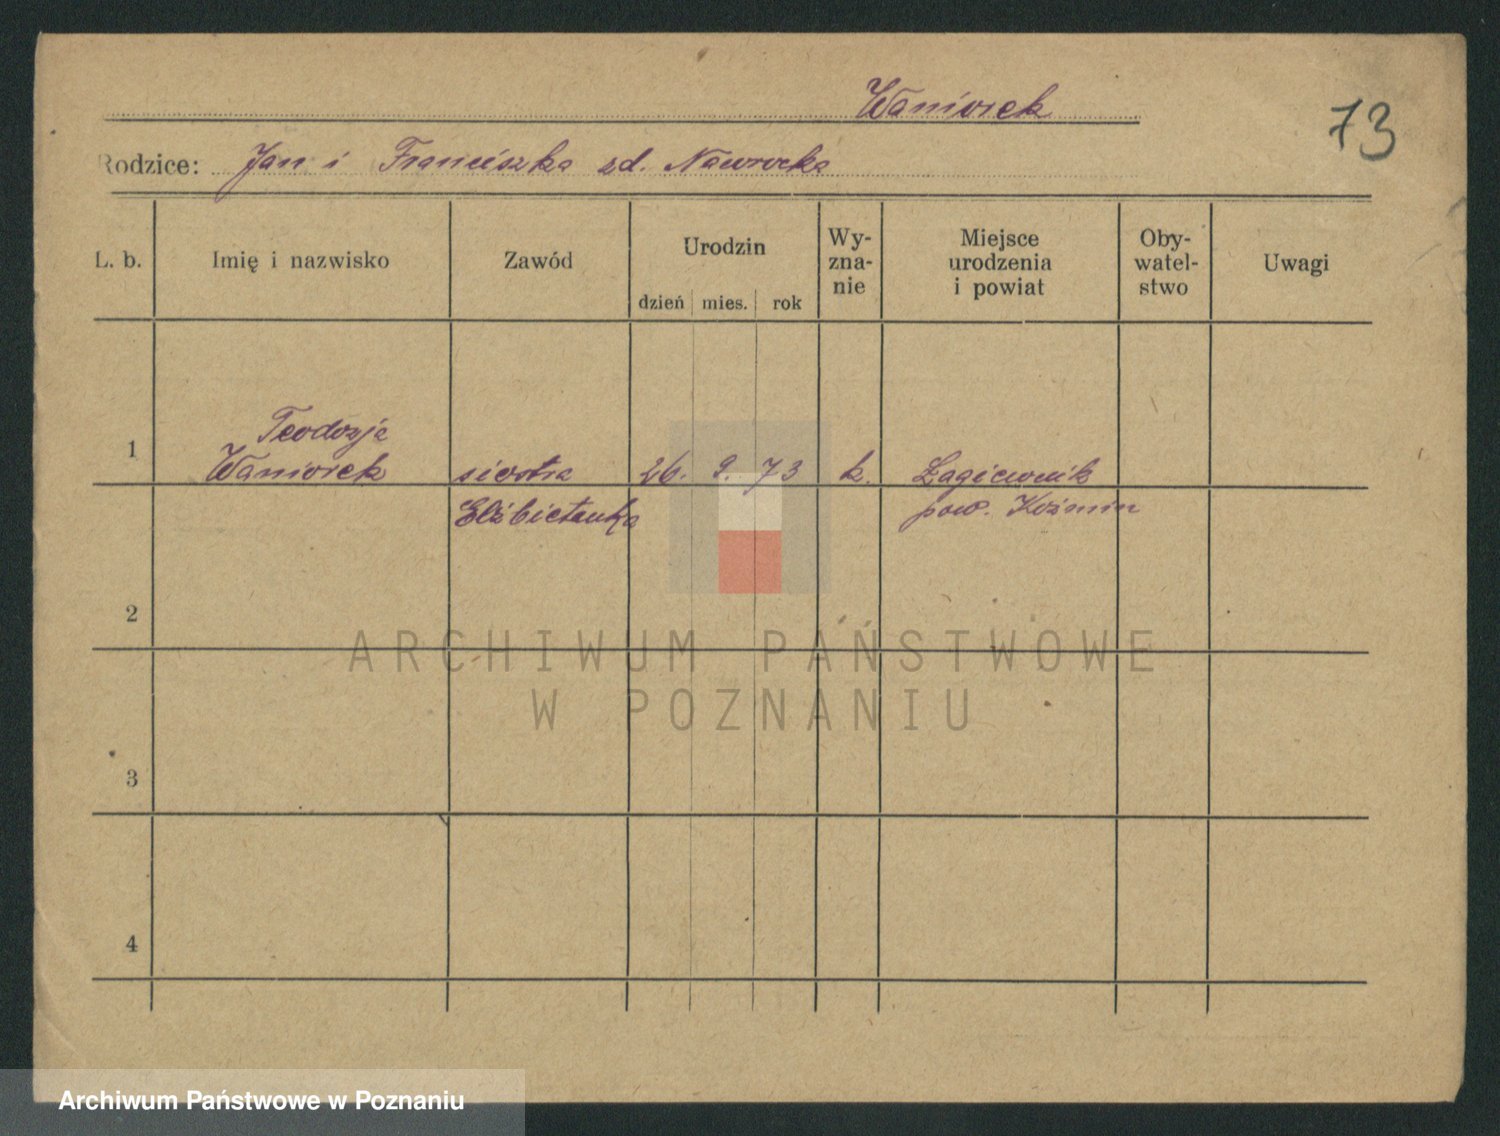 Waniorek
73
Rodzice: Jan i Franciszka zd. Nawrocka
L. b. Imię i nazwisko Zawód Urodzin Wy-zna-nie Miejsce urodzenia i powiat Oby-watel-stwo Uwagi
dzień mies. rok
Teodozja
1 Waniorek siostra 26. 9. 73 k. Łagiewnik
Elżbietanka pow. Koźmin
2
ARCHIWUM PAŃSTWOWE
W POZNANIU
3
4
Archiwum Państwowe w Poznaniu